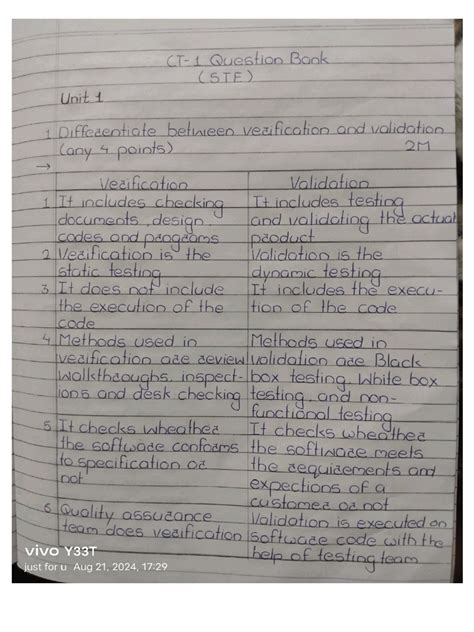 CT-1 Question Bank
(STE)
Unit 1
1 Differentiate between verification and validation
(any 4 points) 2M
→
Verification Validation
1 It includes checking It includes testing
documents, design, and validating the actual
codes and pangrams product
2 Verification is the Validation is the
static testing dynamic testing
3 It does not include It includes the execu-
the execution of the tion of the code
code
4 Methods used in Methods used in
verification are review validation are Black
walkthroughs, inspect- box testing, White box
ions and desk checking testing, and non-
functional testing
5 It checks wheather It checks wheather
the software conforms the software meets
to specification or the requirements and
not expections of a
customer or not
6 Quality assurance Validation is executed on
team does verification software code with the
help of testing team
vivo Y33T
just for u Aug 21, 2024, 17:29